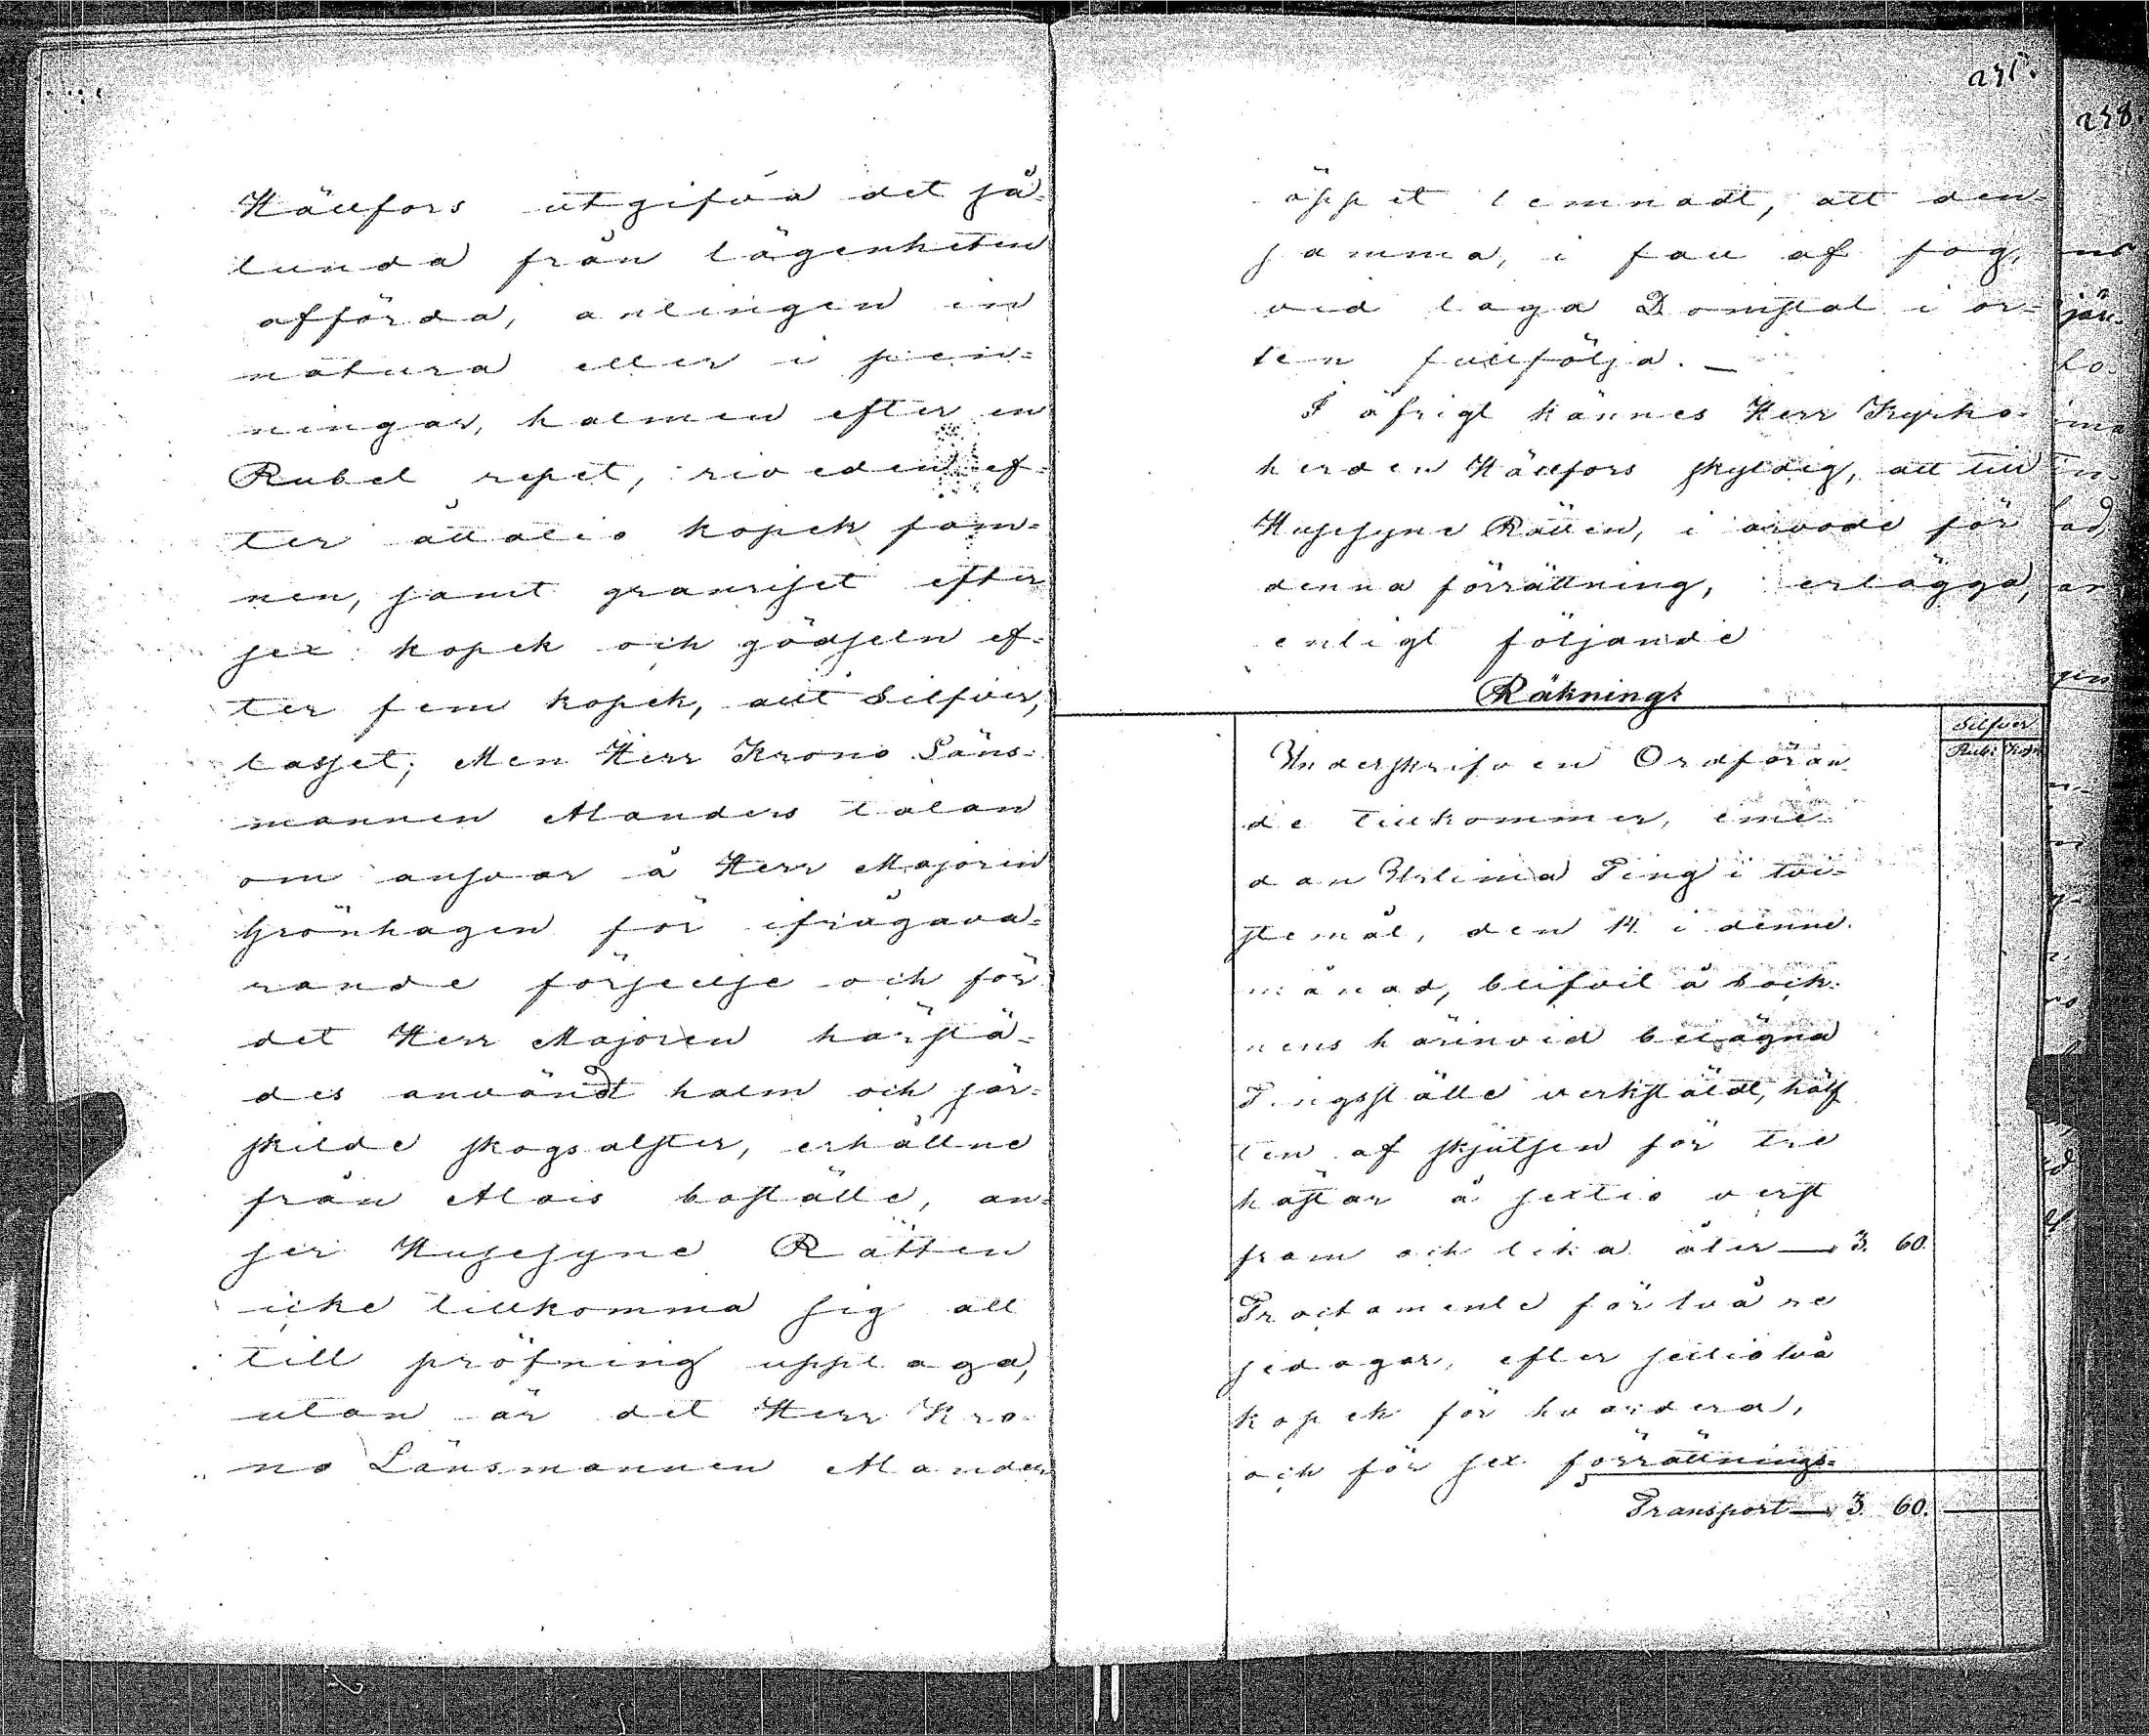 Hällfors utgifva det så-
lunda från lägenheten
afförda, anlingen in
natura eller i pen-
ningar, halmen efter en
Rubel repet, riveden ef-
ter åttatio kopek fam-
nen, samt granriset efter
sex kopek och gödseln ef-
ter fem kopek, allt Silfver,
lasset; Men Herr Krono Läns-
mannen Manders talan
om ansvar å Herr Majoren
Grönhagen för ifrågava-
rande förseelse och för
det Herr Majoren härstä-
des användt halm och sär-
skilde skogsalster, erhållne
från Mois boställe, an-
ser Husesyne Rätten
icke tillkomma sig att
till pröfning upptaga,
utan är det Herr Kro-
no Länsmannen Mander
231.
öppet lemnadt, att den-
samma, i fall af fog,
vid laga Domstol i or-
ten fullfölja. —
I öfrigt kännes Herr Kyrko-
herden Hällfors skyldig, att till
Husesyne Rätten, i arvode för
denna förrättning, erlägga,
enligt följande
Räkning:
Silfver
Rub: Kop:
Underskrifven Ordföran-
de tillkommer, eme-
dan Urtima Ting i tvi-
stemål, den 14 i denne
månad, blifvit å sock-
nens härinvid belägna
Tingsställe verkstäldt, hälf
ten af skjutsen för tre
hästar å sextio verst
fram och lika åter — 3. 60.
Tractamente för två re
sedagar, efter sextiotvå
kopek för hvardera,
och för sex förrättnings-
Transport — 3. 60.
238.